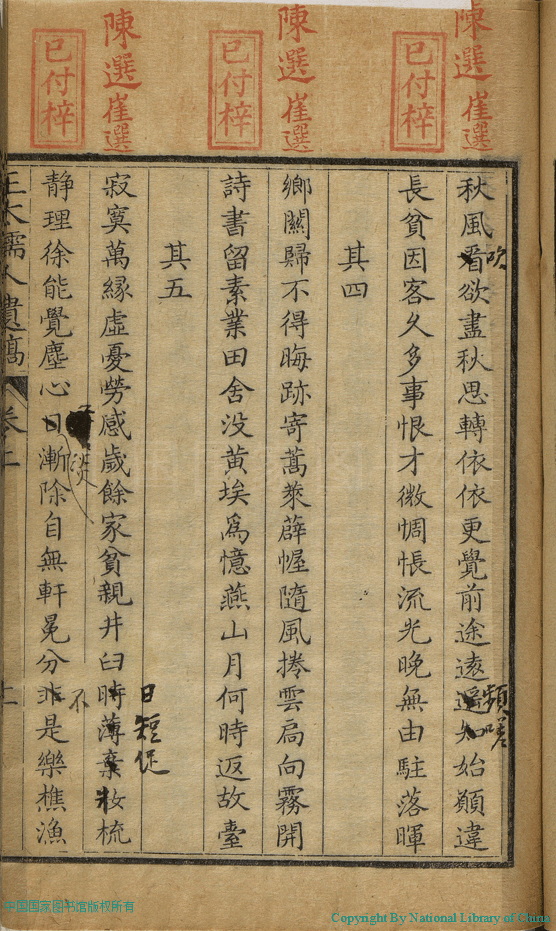 陳選 崔選
已付梓
陳選 崔選
已付梓
陳選 崔選
已付梓
秋風看欲盡秋思轉依依更覺前途遠遥知始願違
吹
頻嗟
長貧因客久多事恨才微惆悵流光晚無由駐落暉
其四
鄉關歸不得晦跡寄蒿萊薜幄隨風捲雲扃向霧開
詩書留素業田舍没黄埃爲憶燕山月何時返故臺
其五
寂寞萬緣虛憂勞感歲餘家貧親井臼時薄棄妝梳
日短促
静理徐能覺塵心日漸除自無軒冕分非是樂樵漁
淡
不
遺稿
卷上
中国国家图书馆版权所有
Copyright By National Library of China